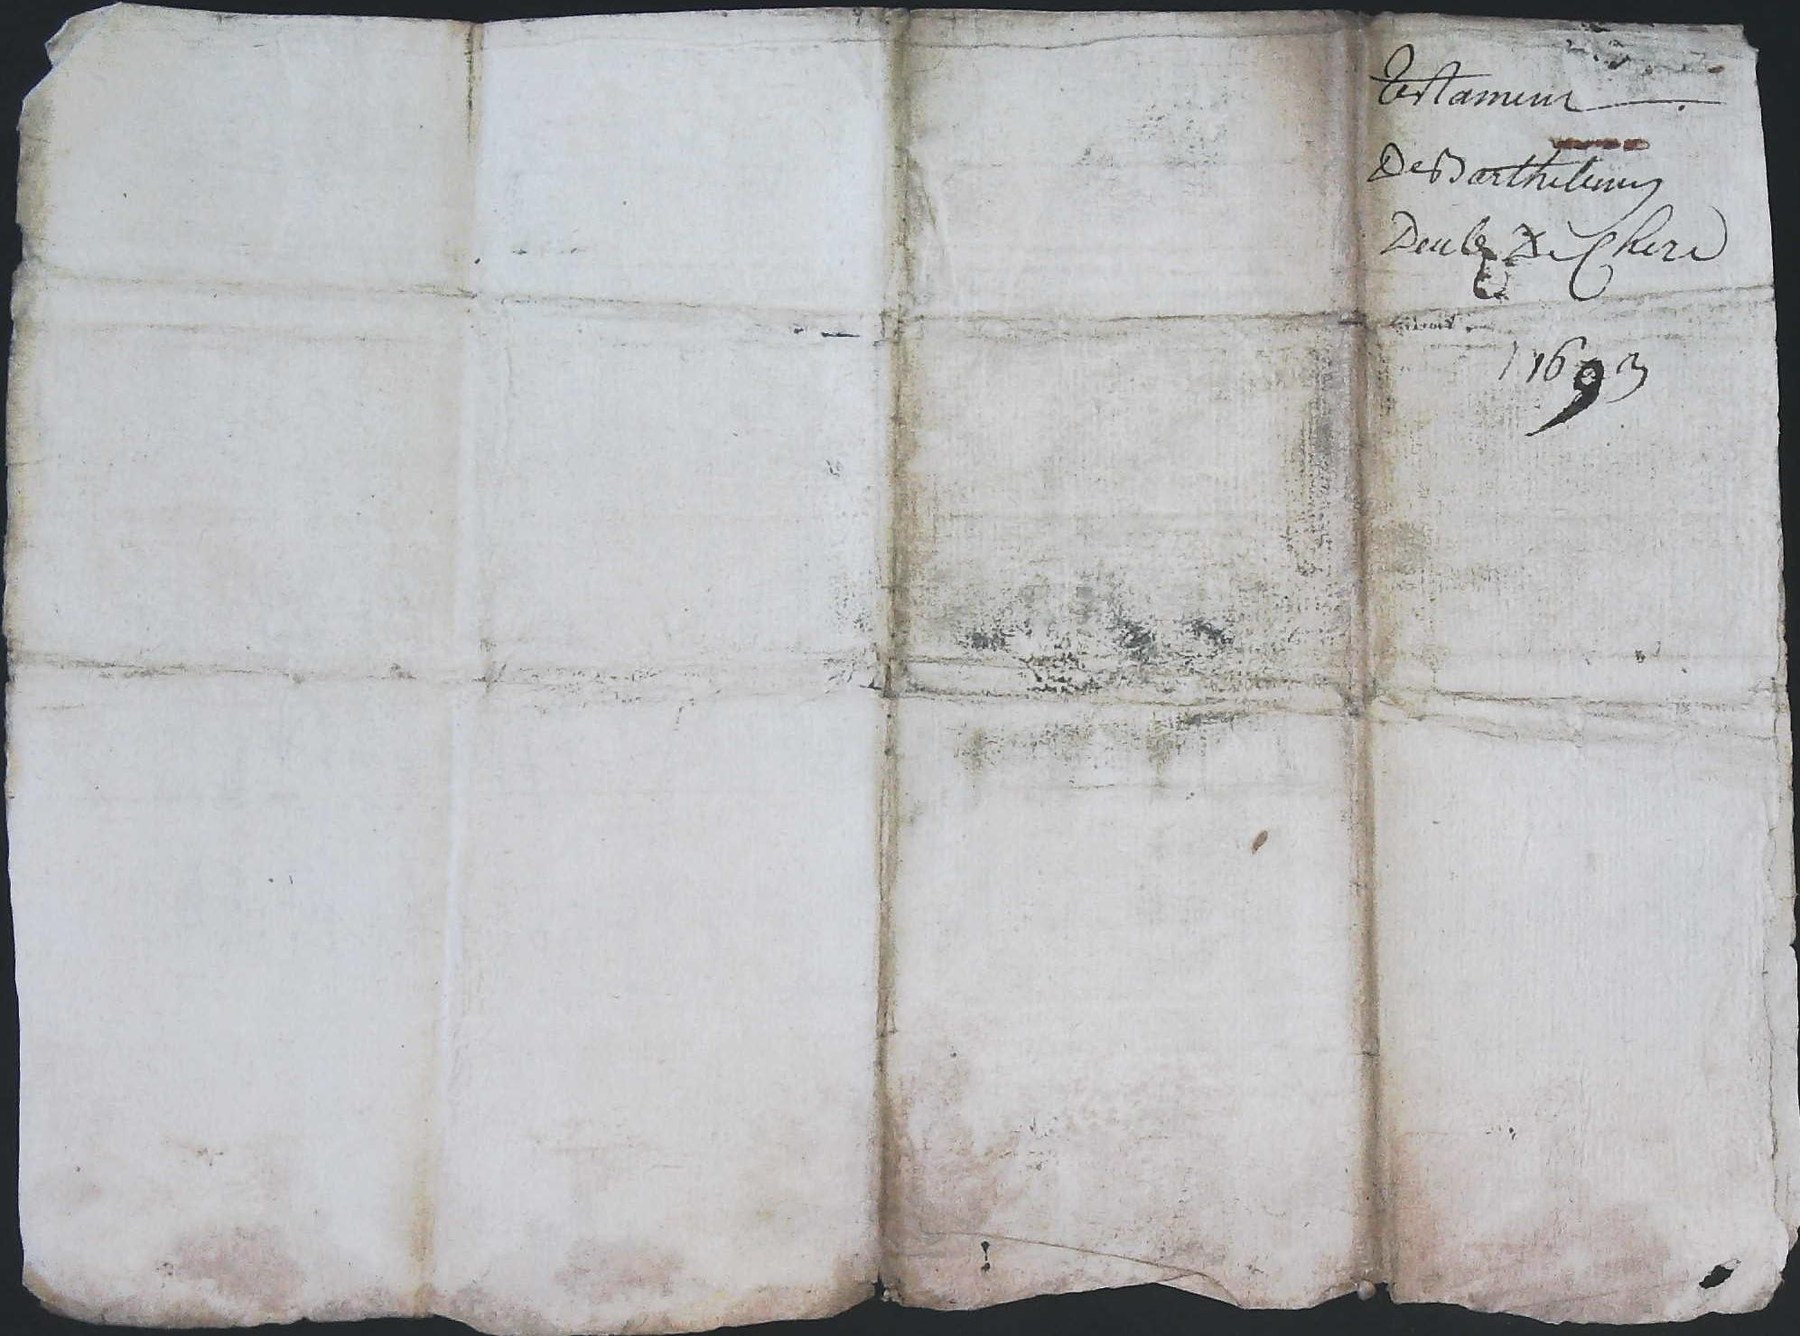 Testament
De Barthelemy
Deulz De Chere
1693